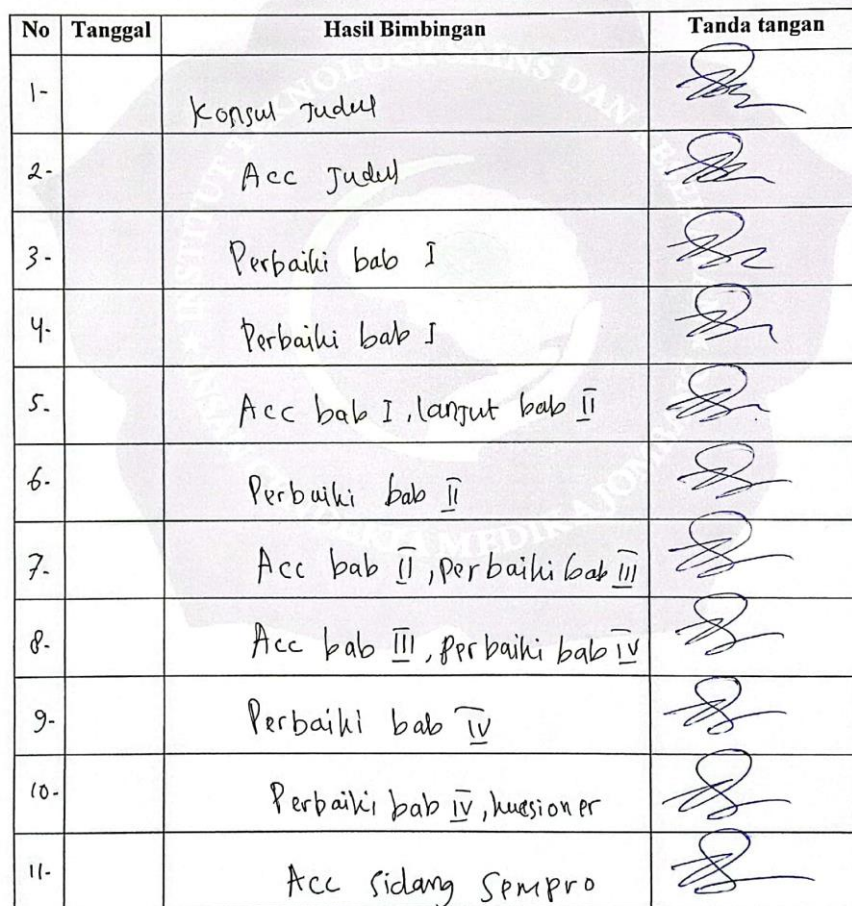 No Tanggal Hasil Bimbingan Tanda tangan
1- Konsul Judul
2- Acc Judul
3- Perbaiki bab I
4- Perbaiki bab I
5- Acc bab I, lanjut bab II
6- Perbaiki bab II
7- Acc bab II, perbaiki bab III
8- Acc bab III, perbaiki bab IV
9- Perbaiki bab IV
10- Perbaiki bab IV, kuesioner
11- Acc sidang Sempro